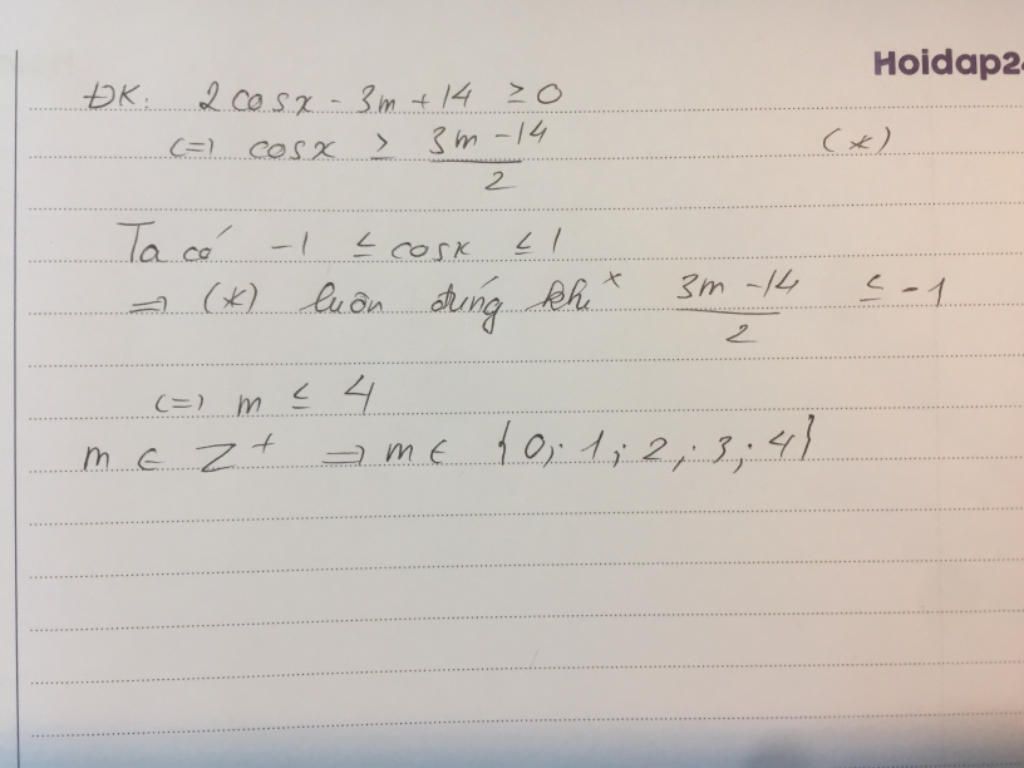 Hoidap2
ĐK: 2cosx - 3m + 14 ≥ 0
(=) cosx ≥ \frac{3m - 14}{2} (*)
Ta có -1 ≤ cosx ≤ 1
=> (*) luôn đúng khi \frac{3m - 14}{2} ≤ -1
(=) m ≤ 4
m ∈ Z⁺ => m ∈ {0; 1; 2; 3; 4}